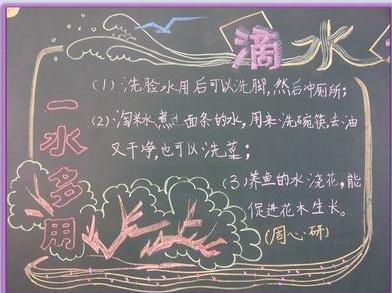 滴水
一水多用
(1) 洗脸水用后可以洗脚,然后冲厕所;
(2) 淘米水煮过面条的水,用来洗碗筷去油
又干净,也可以洗菜;
(3) 养鱼的水浇花,能
促进花木生长。
(周心研)